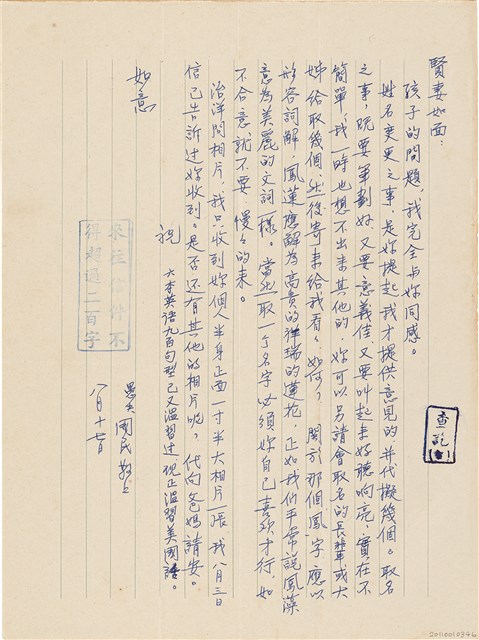 賢妻如面：
孩子的問題，我完全与妳同感。
姓名变更之事，是妳提起我才提供意見的，并代擬幾個。取名
之事，既要筆劃好，又要意義佳，又要叫起來好聽响亮，實在不
簡單，我一時也想不出來其他的，妳可以另請會取名的長輩或大
姊給取幾個，然後寄來給我看看，如何？関於那個鳳字應以
形容詞解，鳳蓮應解為高貴的祥瑞的蓮花，正如我们平常說鳳藻
意為美麗的文詞一樣。當然取一个名字必須妳自己喜欢才行，如
不合意就不要，慢慢的來。
治洋問相片，我只收到妳個人半身正面一寸半大相片一張，我八月三日
信已告訴过妳收到。是否还有其他的相片呢？代向爸媽請安。
六本英語九百句型已又溫習过，現正溫習美國語。
祝
如意
愚夫國民敬上
八月十七日
來往信件不
得超過二百字
查訖
20110010346